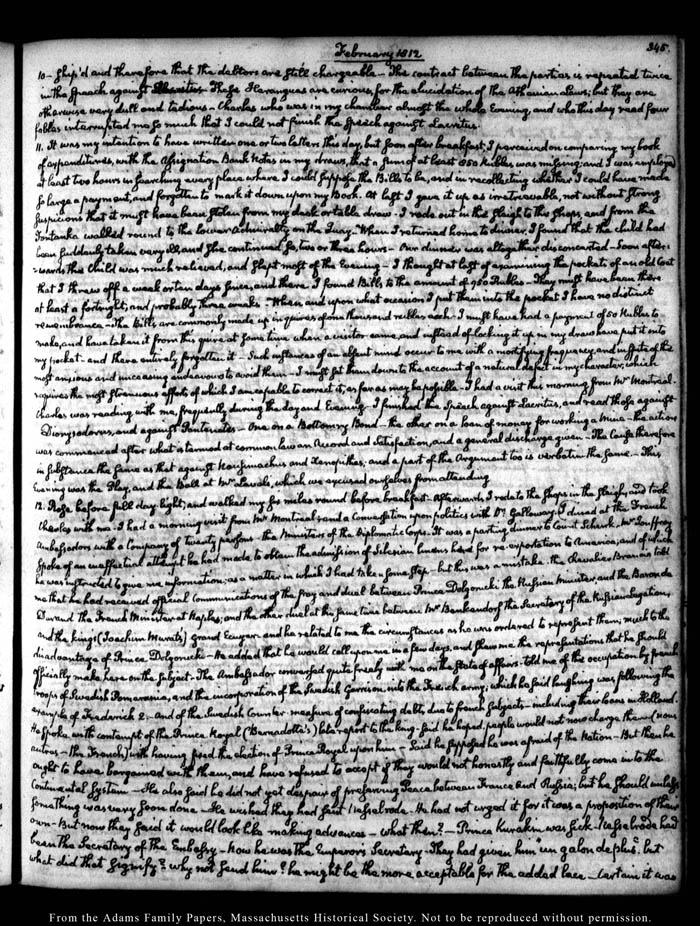 February 1812
345.
10 - ship'd and therefore that the debtors are still chargeable - The contract between the parties is repeated twice
in the Speech against Lacritus. These Harangues are curious, for the elucidation of the Athenian Laws; but they are
otherwise very dull and tedious - Charles who was in my chamber almost the whole Evening, and who this day read four
fables interrupted me so much that I could not finish the Speech against Lacritus.
11. It was my intention to have written one or two letters this day, but soon after breakfast, I perceived on comparing my book
of expenditures, with the Assignation Bank Notes in my draws, that a sum of at least 1050 Rubles was missing; and I was employed
at least two hours in searching every place where I could suppose the Bills to be, and in recollecting whether I could have made
so large a payment, and forgotten to mark it down upon my Book. At last I gave it up as irretrievable, not without strong
suspicions that it must have been stolen from my desk or table draw - I rode out in the sleigh to the Shops, and from the
Fontanka walked round to the lower Admiralty on the Quay. When I returned home to dinner, I found that the child had
been suddenly taken very ill, and she continued so, two or three hours - Our dinner was altogether disconcerted - Soon after-
wards the Child was much relieved, and slept most of the Evening - I thought at last of examining the pocket of an old Coat
that I threw off a week or ten days since, and there I found Bills to the amount of 950 Rubles - They must have been there
at least a fortnight, and probably three weeks - When and upon what occasion I put them into the pocket I have no distinct
remembrance - The Bills are commonly made up in quires of one thousand rubles each - I must have had a payment of 50 Rubles to
make, and have taken it from this quire at some time when a visitor came, and instead of locking it up in my draw have put it into
my pocket - and there entirely forgotten it - Such instances of an absent mind occur to me with a mortifying frequency, and in spite of the
most anxious and unceasing endeavours to avoid them - I must set them down to the account of a natural defect in my character, which
requires the most strenuous efforts of which I am capable to correct it, as far as may be possible - I had a visit this morning from Mr Montréal.
Charles was reading with me, frequently during the day and Evening - I finished the Speech against Lacritus, and read those against
Dionysodorus, and against Pantenetus - One on a Bottomry Bond - the other on a loan of money for working a Mine - the action
was commenced after what is termed at common law an Accord and Satisfaction, and a general discharge given - The Cause therefore
in substance the same as that against Nausimachus and Xenopithes; and a part of the Argument too is verbatim the same. - This
Evening was the Play, and the Ball at Mr Laval's, which we excused ourselves from attending
12. Rose before full day-light, and walked my six miles round before breakfast - Afterwards I rode to the shops in the sleigh, and took
Charles with me - I had a morning visit from Mr Montreal and a Conversation upon politics with Dr Galloway. I dined at the French
Ambassadors with a Company of twenty persons - the Ministers of the Diplomatic Corps. It was a parting dinner to Count Schenk. Mr Jouffroy
spoke of an ineffectual attempt he had made to obtain the admission of Silesian linens here for re-exportation to America; and of which
he was instructed to give me information; as a matter in which I had taken some step - but this was a mistake. The Chevalier Brancia told
me that he had received official Communications of the fray and duel between Prince Dolgorucki the Russian Minister and the Baron de
Durand the French Minister at Naples; and the other duel at the same time between Mr Benkendorf the Secretary of the Russian Legation,
and the king's (Joachim Murat's) Grand Ecuyer: and he related to me the circumstances as he was ordered to represent them; much to the
disadvantage of Prince Dolgorucki - He added that he would call upon me in a few days, and shew me the representations that he should
officially make here on the subject - The Ambassador conversed quite freely with me on the state of affairs. told me of the occupation by French
troops of Swedish Pomerania, and the incorporation of the Swedish Garrison into the French army; which he said laughing was following the
example of Frederick 2. - And of the Swedish Counter-measure of confiscating debts due to French subjects - including their loans in Holland.
He spoke with contempt of the Prince Royal (Bernadotte's) late report to the king - said he hoped people would not now charge them (nous
autres - the French) with having fixed the election of Prince Royal upon him - Said he supposed he was afraid of the Nation - But then he
ought to have bargained with them, and have refused to accept if they would not honestly and faithfully come into the
Continental System - He also said he did not yet despair of preserving Peace between France and Russia; but he should unless
something was very soon done - He wished they had sent Nesselrode - He had not urged it for it was a proposition of their
own - But now they said it would look like making advances - what then? - Prince Kurakin was sick - Nesselrode had
been the Secretary of the Embassy - now he was the Emperor's Secretary - They had given him "un galon de plus." but
what did that signify? why not send him? he might be the more acceptable for the added lace - Certain it was
From the Adams Family Papers, Massachusetts Historical Society. Not to be reproduced without permission.